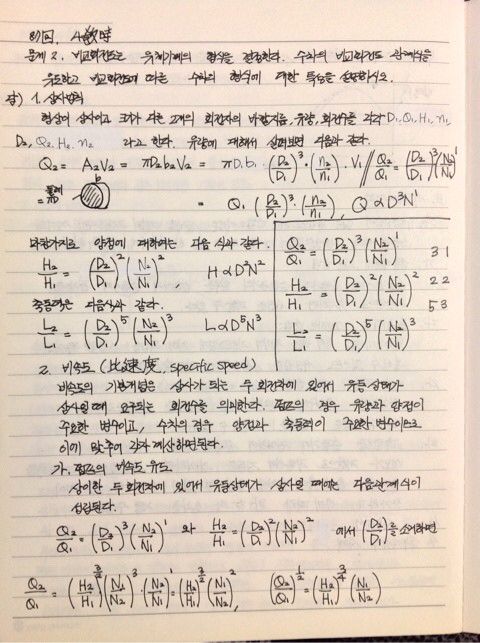 문제 2. 비교회전도는 유체기계의 형식을 결정한다. 수차의 비교회전도 관계식을
유도하고 비교회전도에 따른 수차의 형식에 대한 특성을 설명하시오.
답) 1. 상사법칙
형상이 상사이고 크기가 다른 2개의 회전차의 바깥지름, 유량, 회전수를 각각 D₁, Q₁, H₁, n₁,
D₂, Q₂, H₂, n₂ 라고 한다. 유량에 대해서 살펴보면 다음과 같다.
Q₂ = A₂V₂ = πD₂b₂V₂ = πD₁b₁·(D₂/D₁)³·(n₂/n₁)·V₁ // Q₂/Q₁ = (D₂/D₁)³(N₂/N₁)¹
둘레 = πD b
= Q₁ (D₂/D₁)³·(n₂/n₁), Q ∝ D³N¹
마찬가지로 양정에 대하여는 다음 식과 같다.
H₂/H₁ = (D₂/D₁)²(N₂/N₁)², H ∝ D²N²
축동력은 다음식과 같다.
L₂/L₁ = (D₂/D₁)⁵(N₂/N₁)³ L ∝ D⁵N³
Q₂/Q₁ = (D₂/D₁)³(N₂/N₁)¹ 3 1
H₂/H₁ = (D₂/D₁)²(N₂/N₁)² 2 2
5 3
L₂/L₁ = (D₂/D₁)⁵(N₂/N₁)³
2. 비속도 (比速度, specific speed)
비속도의 기본개념은 상사가 되는 두 회전차에 있어서 유동상태가
상사일 때 요구되는 회전수를 의미한다. 펌프의 경우 유량과 양정이
중요한 변수이고, 수차의 경우 양정과 축동력이 중요한 변수이므로
이에 맞추어 각각 계산하면 된다.
가. 펌프의 비속도 유도
상이한 두 회전차에 있어서 유동상태가 상사일 때에는 다음 관계식이
성립된다.
Q₂/Q₁ = (D₂/D₁)³(N₂/N₁)¹ 와 H₂/H₁ = (D₂/D₁)²(N₂/N₁)² 에서 (D₂/D₁)를 소거하면
Q₂/Q₁ = (H₂/H₁)^3/2 (N₁/N₂)³·(N₂/N₁)¹ = (H₂/H₁)^3/2 (N₁/N₂)², (Q₂/Q₁)^1/2 = (H₂/H₁)^3/4 (N₁/N₂)